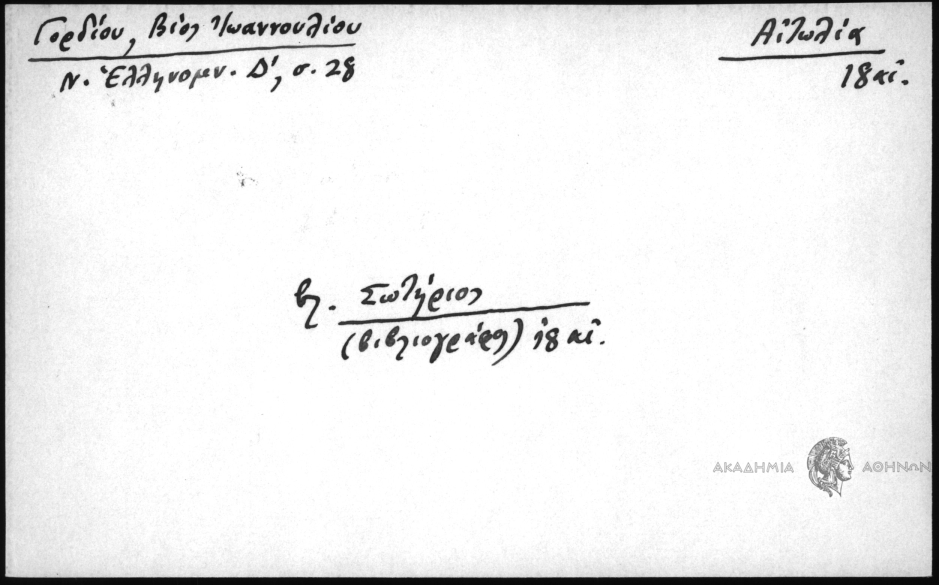 Γορδίου, Βίος Ἰωαννουλίου
Ν. Ἑλληνομν. Δ', σ. 28
Αἰτωλία
18 αἰ.
βλ. Σωτήριος
(βιβλιογράφος) 18 αἰ.
ΑΚΑΔΗΜΙΑ ΑΘΗΝΩΝ